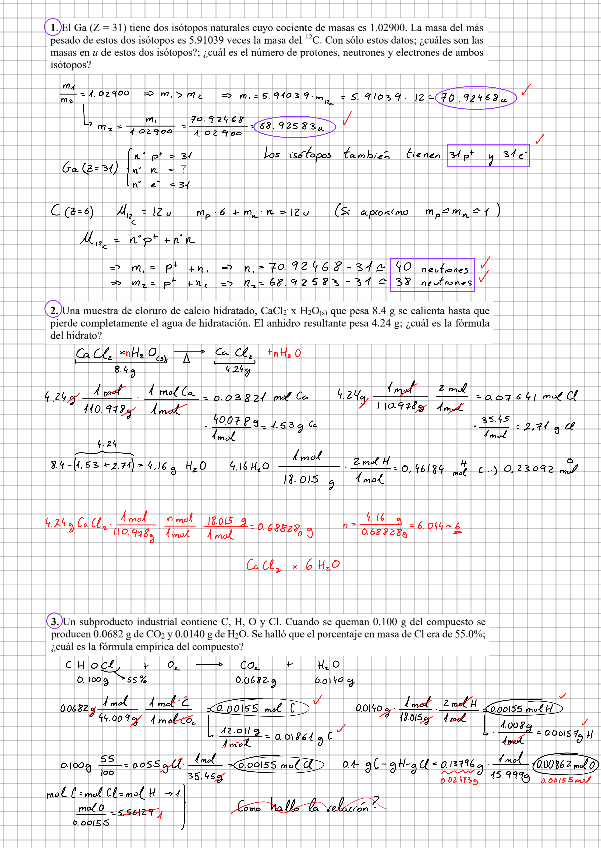 1. El Ga (Z = 31) tiene dos isótopos naturales cuyo cociente de masas es 1.02900. La masa del más
pesado de estos dos isótopos es 5.91039 veces la masa del ¹²C. Con sólo estos datos; ¿cuáles son las
masas en u de estos dos isótopos?; ¿cuál es el número de protones, neutrones y electrones de ambos
isótopos?
m₁/m₂ = 1.02900 ⇒ m₁ > m₂ ⇒ m₁ = 5.91039 · m₁₂c = 5.91039 · 12 = 70.92468u ✓
↳ m₂ = m₁/1.02900 = 70.92468/1.02900 = 68.92583u ✓
Ga (Z=31) { nº p⁺ = 31
nº n = ?
nº e⁻ = 31
Los isótopos también tienen 31p⁺ y 31e⁻ ✓
C (Z=6) M₁₂c = 12u mp · 6 + mn · n = 12u (Si aproximo mp ≃ mn ≃ 1)
M₁₂c = nºp⁺ + nºn
⇒ m₁ = p⁺ + n₁ ⇒ n₁ = 70.92468 - 31 ≃ 40 neutrones ✓
⇒ m₂ = p⁺ + n₂ ⇒ n₂ = 68.92583 - 31 ≃ 38 neutrones ✓
2. Una muestra de cloruro de calcio hidratado, CaCl₂· x H₂O(s) que pesa 8.4 g se calienta hasta que
pierde completamente el agua de hidratación. El anhidro resultante pesa 4.24 g; ¿cuál es la fórmula
del hidrato?
CaCl₂ × nH₂O(s) →Δ CaCl₂ + nH₂O
8.4g 4.24g
4.24g · 1mol/110.978g · 1molCa/1mol = 0.03821 mol Ca 4.24g · 1mol/110.978g · 2mol/1mol = 0.07641 mol Cl
· 40.078g/1mol = 1.53g Ca · 35.45/1mol = 2.71 g Cl
4.24
8.4 - (1.53 + 2.71) = 4.16g H₂O 4.16 H₂O 1mol/18.015 g · 2molH/1mol = 0.46184 mol H (..) 0.23092 mol O
4.24g CaCl₂ · 1mol/110.978g · n mol/1mol · 18.015 g/1mol = 0.68828n g n = 4.16 g/0.68828g = 6.044 ≈ 6
CaCl₂ × 6H₂O
3. Un subproducto industrial contiene C, H, O y Cl. Cuando se queman 0.100 g del compuesto se
producen 0.0682 g de CO₂ y 0.0140 g de H₂O. Se halló que el porcentaje en masa de Cl era de 55.0%;
¿cuál es la fórmula empírica del compuesto?
C H O Cl + O₂ → CO₂ + H₂O
0.100g 55% 0.0682g 0.0140g
0.0682g · 1mol/44.009g · 1mol C/1mol CO₂ = 0.00155 mol C ✓ 0.0140g · 1mol/18.015g · 2mol H/1mol = 0.00155 mol H ✓
↳ 12.011g/1mol = 0.01861g C ✓ ↳ · 1.008g/1mol = 0.00157g H ✓
0.100g 55/100 = 0.055gCl · 1mol/35.45g = 0.00155 mol Cl ✓ 0.1 - gC - gH - gCl = 0.13796g · 1mol/15.999g = 0.00862 mol O
0.02483g 0.00155mol
mol C = mol Cl = mol H → 1
mol O/0.00155 = 5.56129 1
Como hallo la relación?